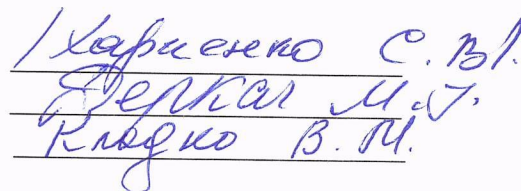 Харченко С. В.
Деркач М. Г.
Кладко В. М.